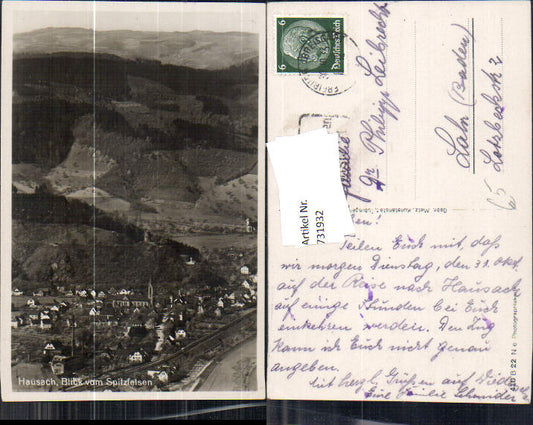 Hausach, Blick vom Spitzfelsen
6 Deutsches Reich 6
Familie
Gr. Philipp Leibrecht
Lahr (Baden)
Lotzbeckstr 2
Artikel Nr.
731932
Gebr. Metz, Kunstanstalt, Tübingen
Teilen Euch mit, daß
wir morgen Dienstag, den 31. Okt.
auf der Reise nach Hausach
auf einige Stunden bei Euch
einkehren werden. Den Zug
kann ich Euch nicht genau
angeben.
Mit herzl. Grüßen auf Wieders.
Eure Familie Schmider
410 B 22 N e Photographie